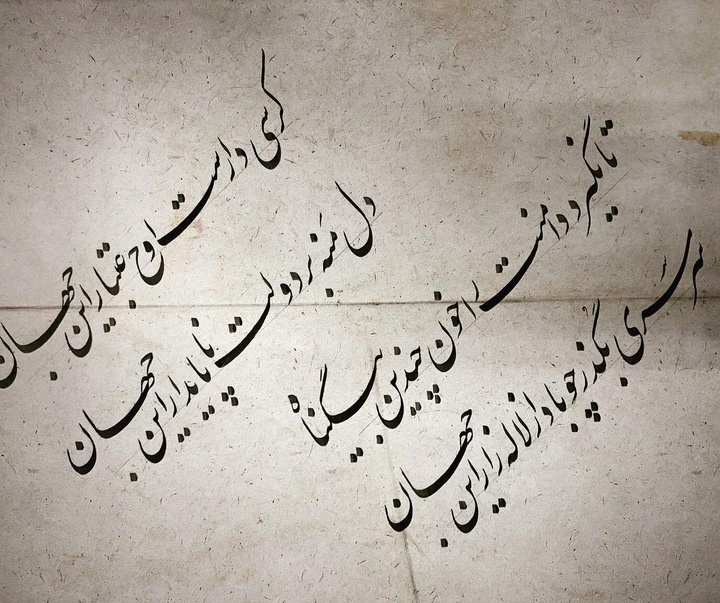 کرسی دارست اوج اعتبار این جهان
دل منه بر دولت ناپایدار این جهان
تا نگیرد دامنت را خون چندین بیگناه
سرسری بگذر چو باد از لاله زار این جهان